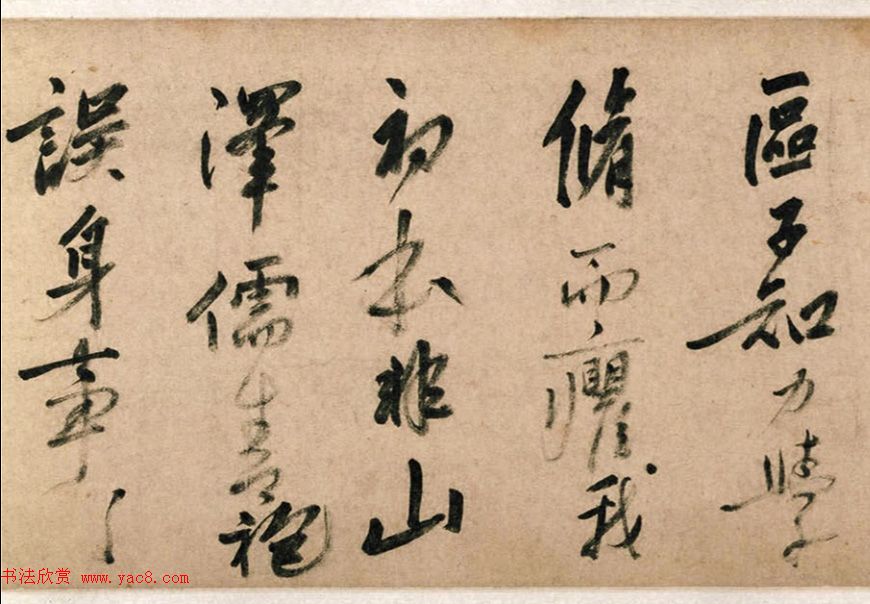 區子知力學
脩而癯我
初本非山
澤儒生青袍
誤身事
书法欣赏 www.yac8.com